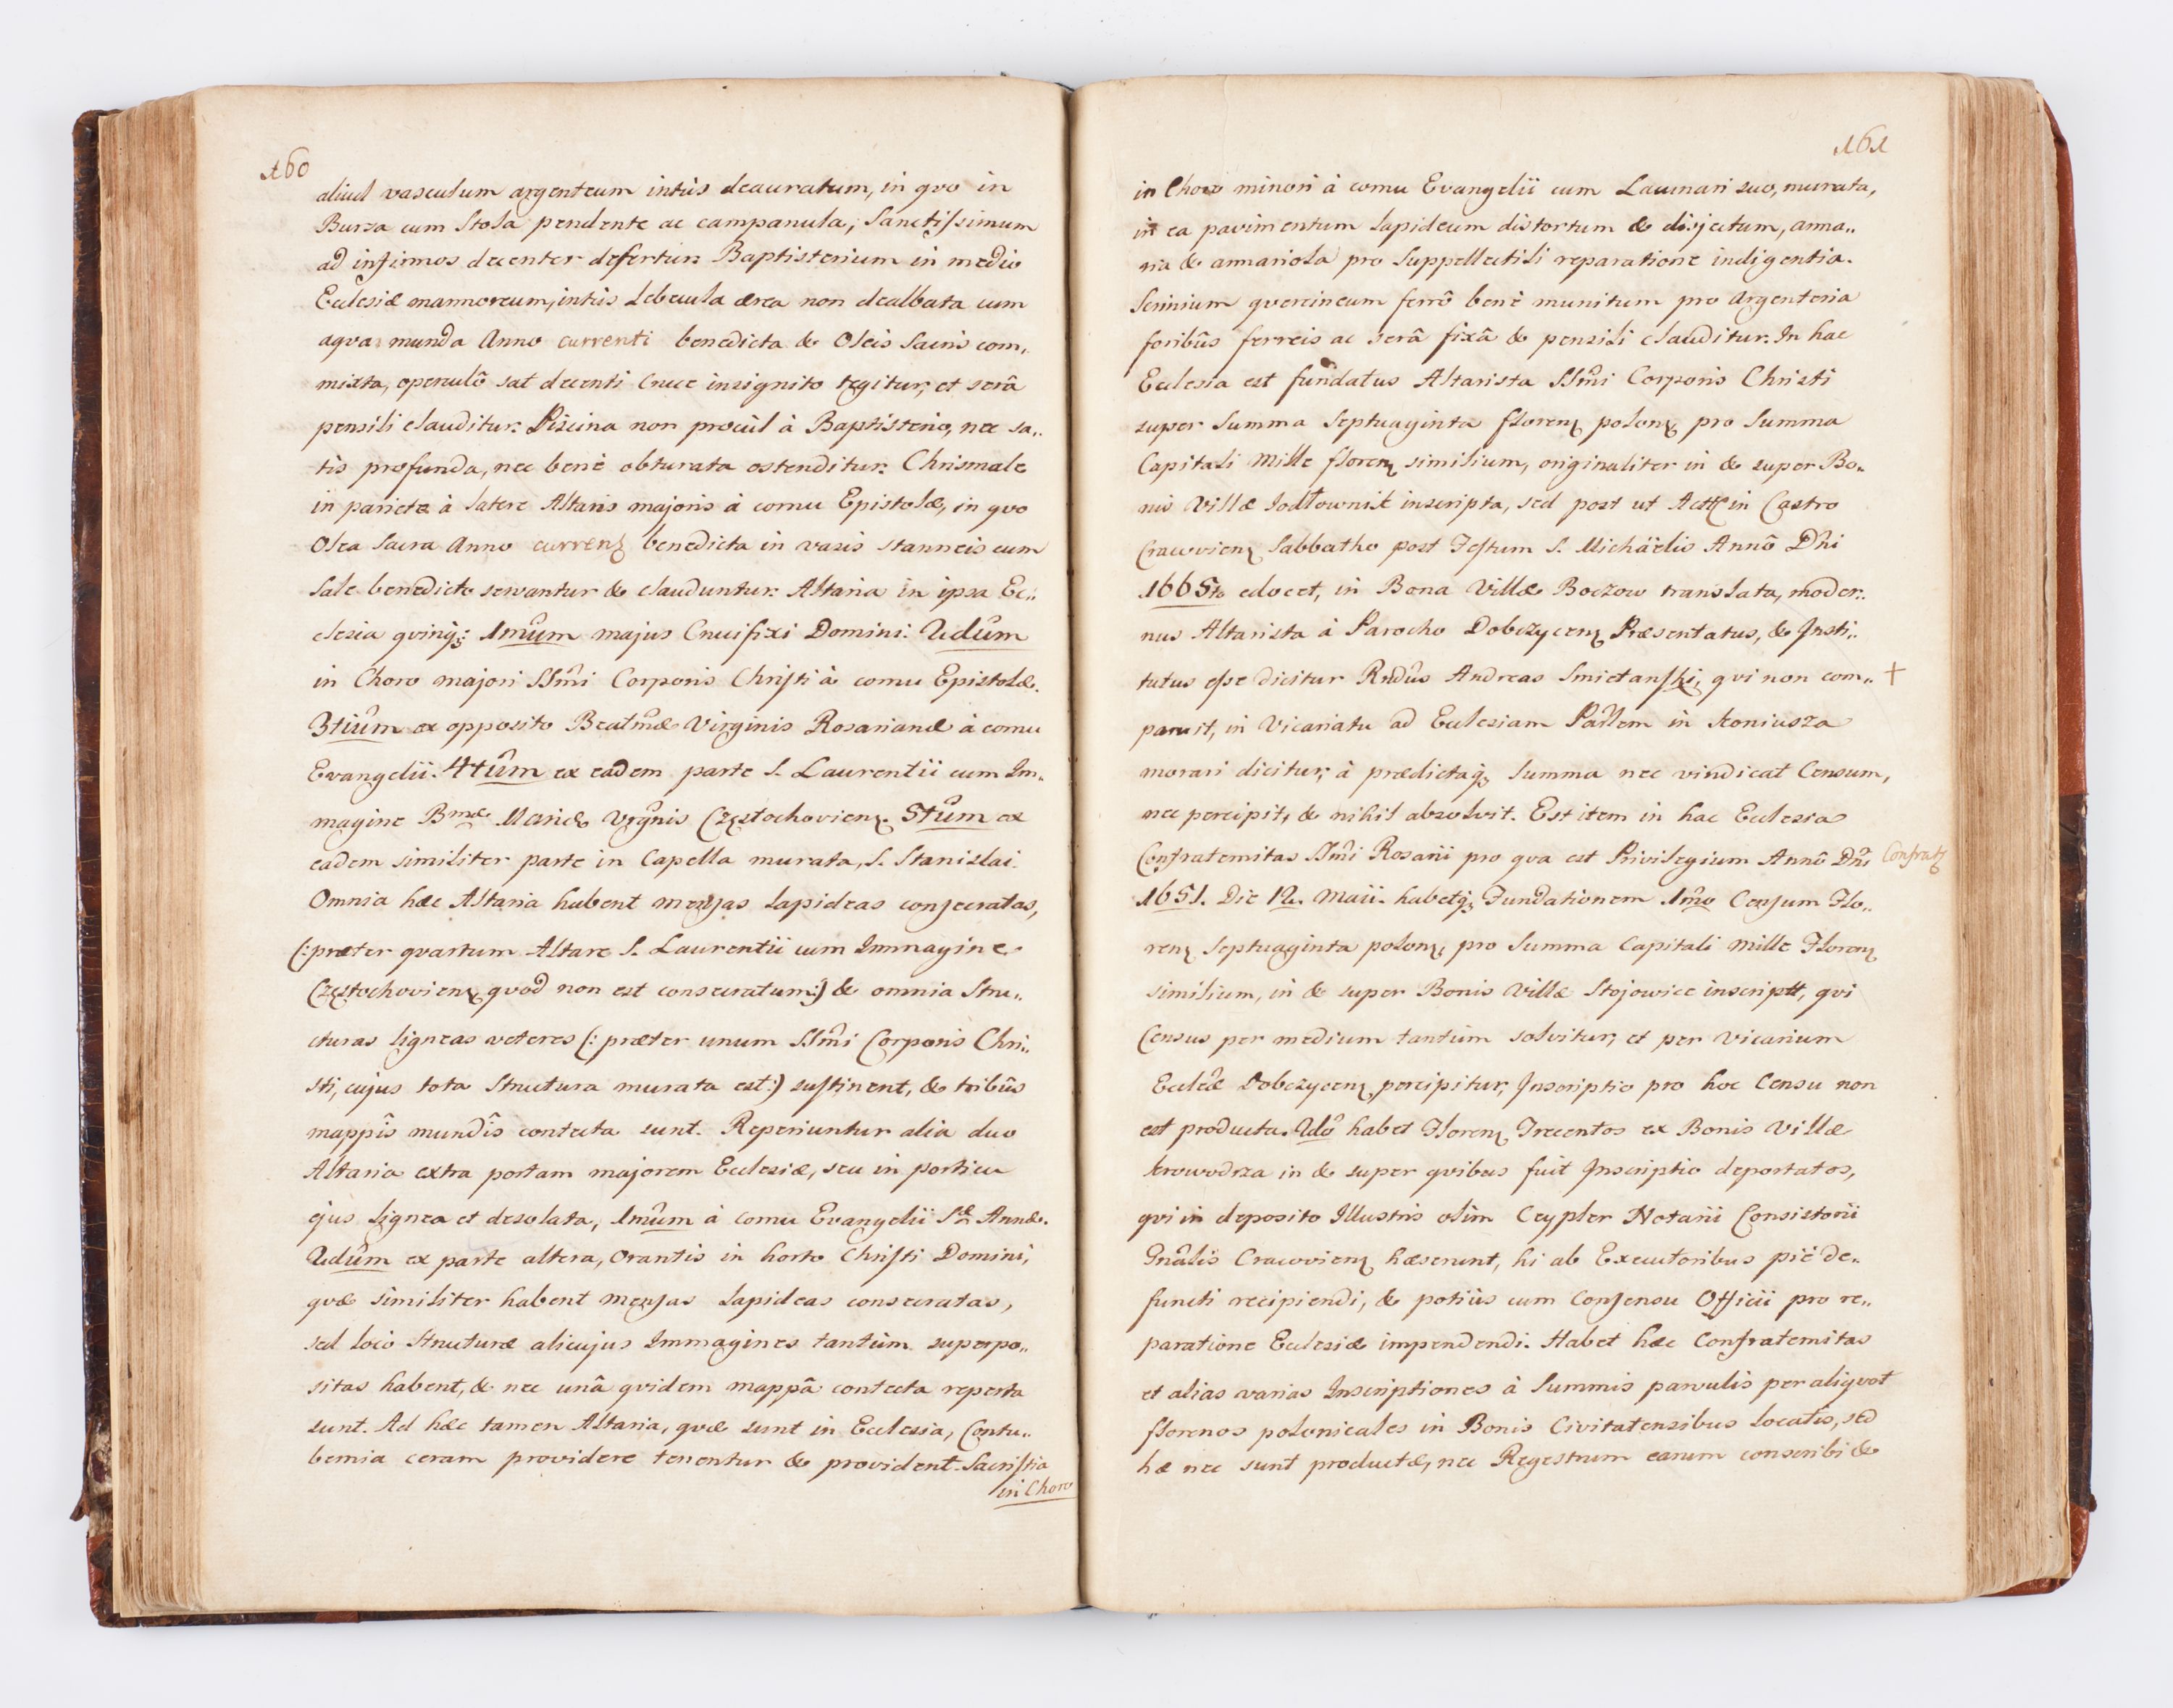 160
aliud vasculum argenteum intùs deauratum, in qvo in
Bursa cum Stola pendente ac campanula, Sanctissimum
ad infirmos decenter defertur. Baptisterium in medio
Ecclesiæ marmoreum, intùs Lebecula ærea non dealbata cum
aqva munda Anno currenti benedicta & Oleis Sacris com„
mixta, operculô sat decenti Cruce insignito tegitur, et serâ
pensili clauditur. Piscina non procùl à Baptisterio, nec sa„
tis profunda, nec benè obturata ostenditur. Chrismale
in pariete à latere Altaris majoris à cornu Epistolæ, in qvo
Olea Sacra Anno curren benedicta in vasis stanneis cum
Sale benedicto servantur & clauduntur. Altaria in ipsa Ec„
clesia qvinq; 1mûm majus Crucifixi Domini. 2dûm
in Choro majori SSmi Corporis Christi à cornu Epistolæ.
3tiûm ex opposito Beatmæ Virginis Rosarianæ à cornu
Evangelii. 4tûm ex eadem parte S. Laurentii cum Im„
magine Bmæ Mariæ Vrgnis Częstochovien. 5tûm ex
eadem similiter parte in Capella murata, S. Stanislai.
Omnia hæc Altaria habent mensas Lapideas consecratas,
(: præter qvartum Altare S. Laurentii cum Immagine
Częstochovien qvod non est consecratum :) & omnia Stru„
cturas ligneas veteres (: præter unum SSmi Corporis Chri„
sti, cujus tota Structura murata est :) sustinent, & tribûs
mappîs mundîs contecta sunt. Reperiuntur alia duo
Altaria extra portam majorem Ecclesiæ, seu in porticu
ejus Lignea et desolata, 1mûm à cornu Evangelii Sæ Annæ.
2dûm ex parte altera, Orantis in horto Christi Domini,
qvæ similiter habent mensas Lapideas consecratas,
sed loco Structuræ alicujus Immagines tantùm superpo„
sitas habent, & nec unâ qvidem mappâ contecta reperta
sunt. Ad hæc tamen Altaria, qvæ sunt in Ecclesia, Contu„
bernia ceram providere tenentur & provident. Sacristia
in Choro
161
in Choro minori à cornu Evangelii cum Laqunari suo, murata,
in ea pavimentum Lapideum distortum & disjectum, arma„
ria & armariola pro Suppellectili reparatione indigentia.
Scrinium qvercineum ferrô benè munitum pro Argenteria
foribûs ferreis ac serâ fixâ & pensili clauditur. In hac
Ecclesia est fundatus Altarista SSmi Corporis Christi
super Summa Septuaginta floren polon pro Summa
Capitali Mille floren similium, originaliter in & super Bo„
nis Villæ Jodłownik inscripta, sed post ut Actt in Castro
Cracovien Sabbatho post Festum S. Michäelis Annô Dni
1665to edocet, in Bona Villæ Boczow translata, moder„
nus Altarista à Parocho Dobczycen Præsentatus, & Insti„
tutus esse dicitur Rndûs Andreas Smietanski, qvi non com„ +
paruit, in Vicariatu ad Ecclesiam Parlem in Koniusza
morari dicitur, à prædictaq; Summa nec vindicat Censum,
nec percipit, & nihil absolvit. Est item in hac Ecclesia
Confraternitas SSmi Rosarii pro qva est Privilegium Annô Dni Confrat
1651. Die 12. Maii. habetq; Fundationem 1mo Censum Flo„
ren Septuaginta polon, pro Summa Capitali Mille Floren
similium, in & super Bonis Villæ Stojowice inscriptt, qvi
Census per medium tantùm solvitur, et per Vicarium
Ecclæ Dobczycen percipitur, Inscriptio pro hoc Censu non
est producta. 2dô habet Floren Trecentos ex Bonis Villæ
Krowodrza in & super qvibus fuit Inscriptio deportatos,
qvi in deposito Illustris olim Ceypler Notarii Consistorii
Gnâlis Cracovien hæserunt, hi ab Executoribus piè de„
functi recipiendi, & potiùs cum Consensu Officii pro re„
paratione Ecclesiæ impendendi. Habet hæc Confraternitas
et alias varias Inscriptiones à Summis parvulis per aliqvot
florenos polonicales in Bonis Civitatensibus Locatis, sed
hæ nec sunt productæ, nec Regestrum earum conscribi &